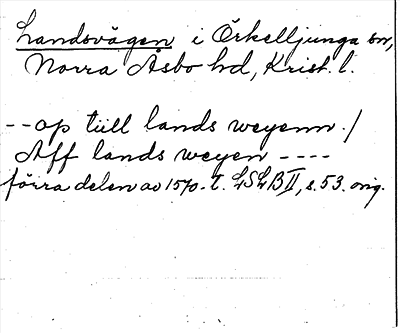 Landsvägen i Örkelljunga sn,
Norra Åsbo hd, Krist. l.
-- op tiill lands weyenn. /
Aff lands weyen ----
förra delen av 1570-t. LSLB II, s. 53. orig.